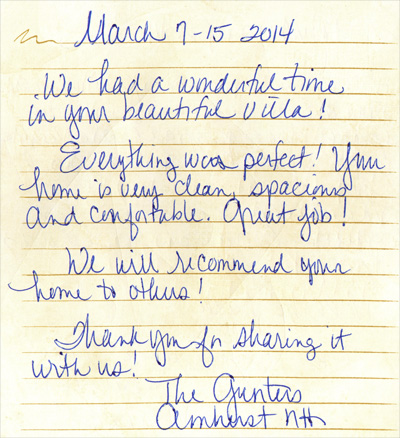 March 7-15 2014
We had a wonderful time
in your beautiful villa!
Everything was perfect! Your
home is very clean, spacious
and comfortable. Great job!
We will recommend your
home to others!
Thank you for sharing it
with us!
The Gunters
Amherst NH